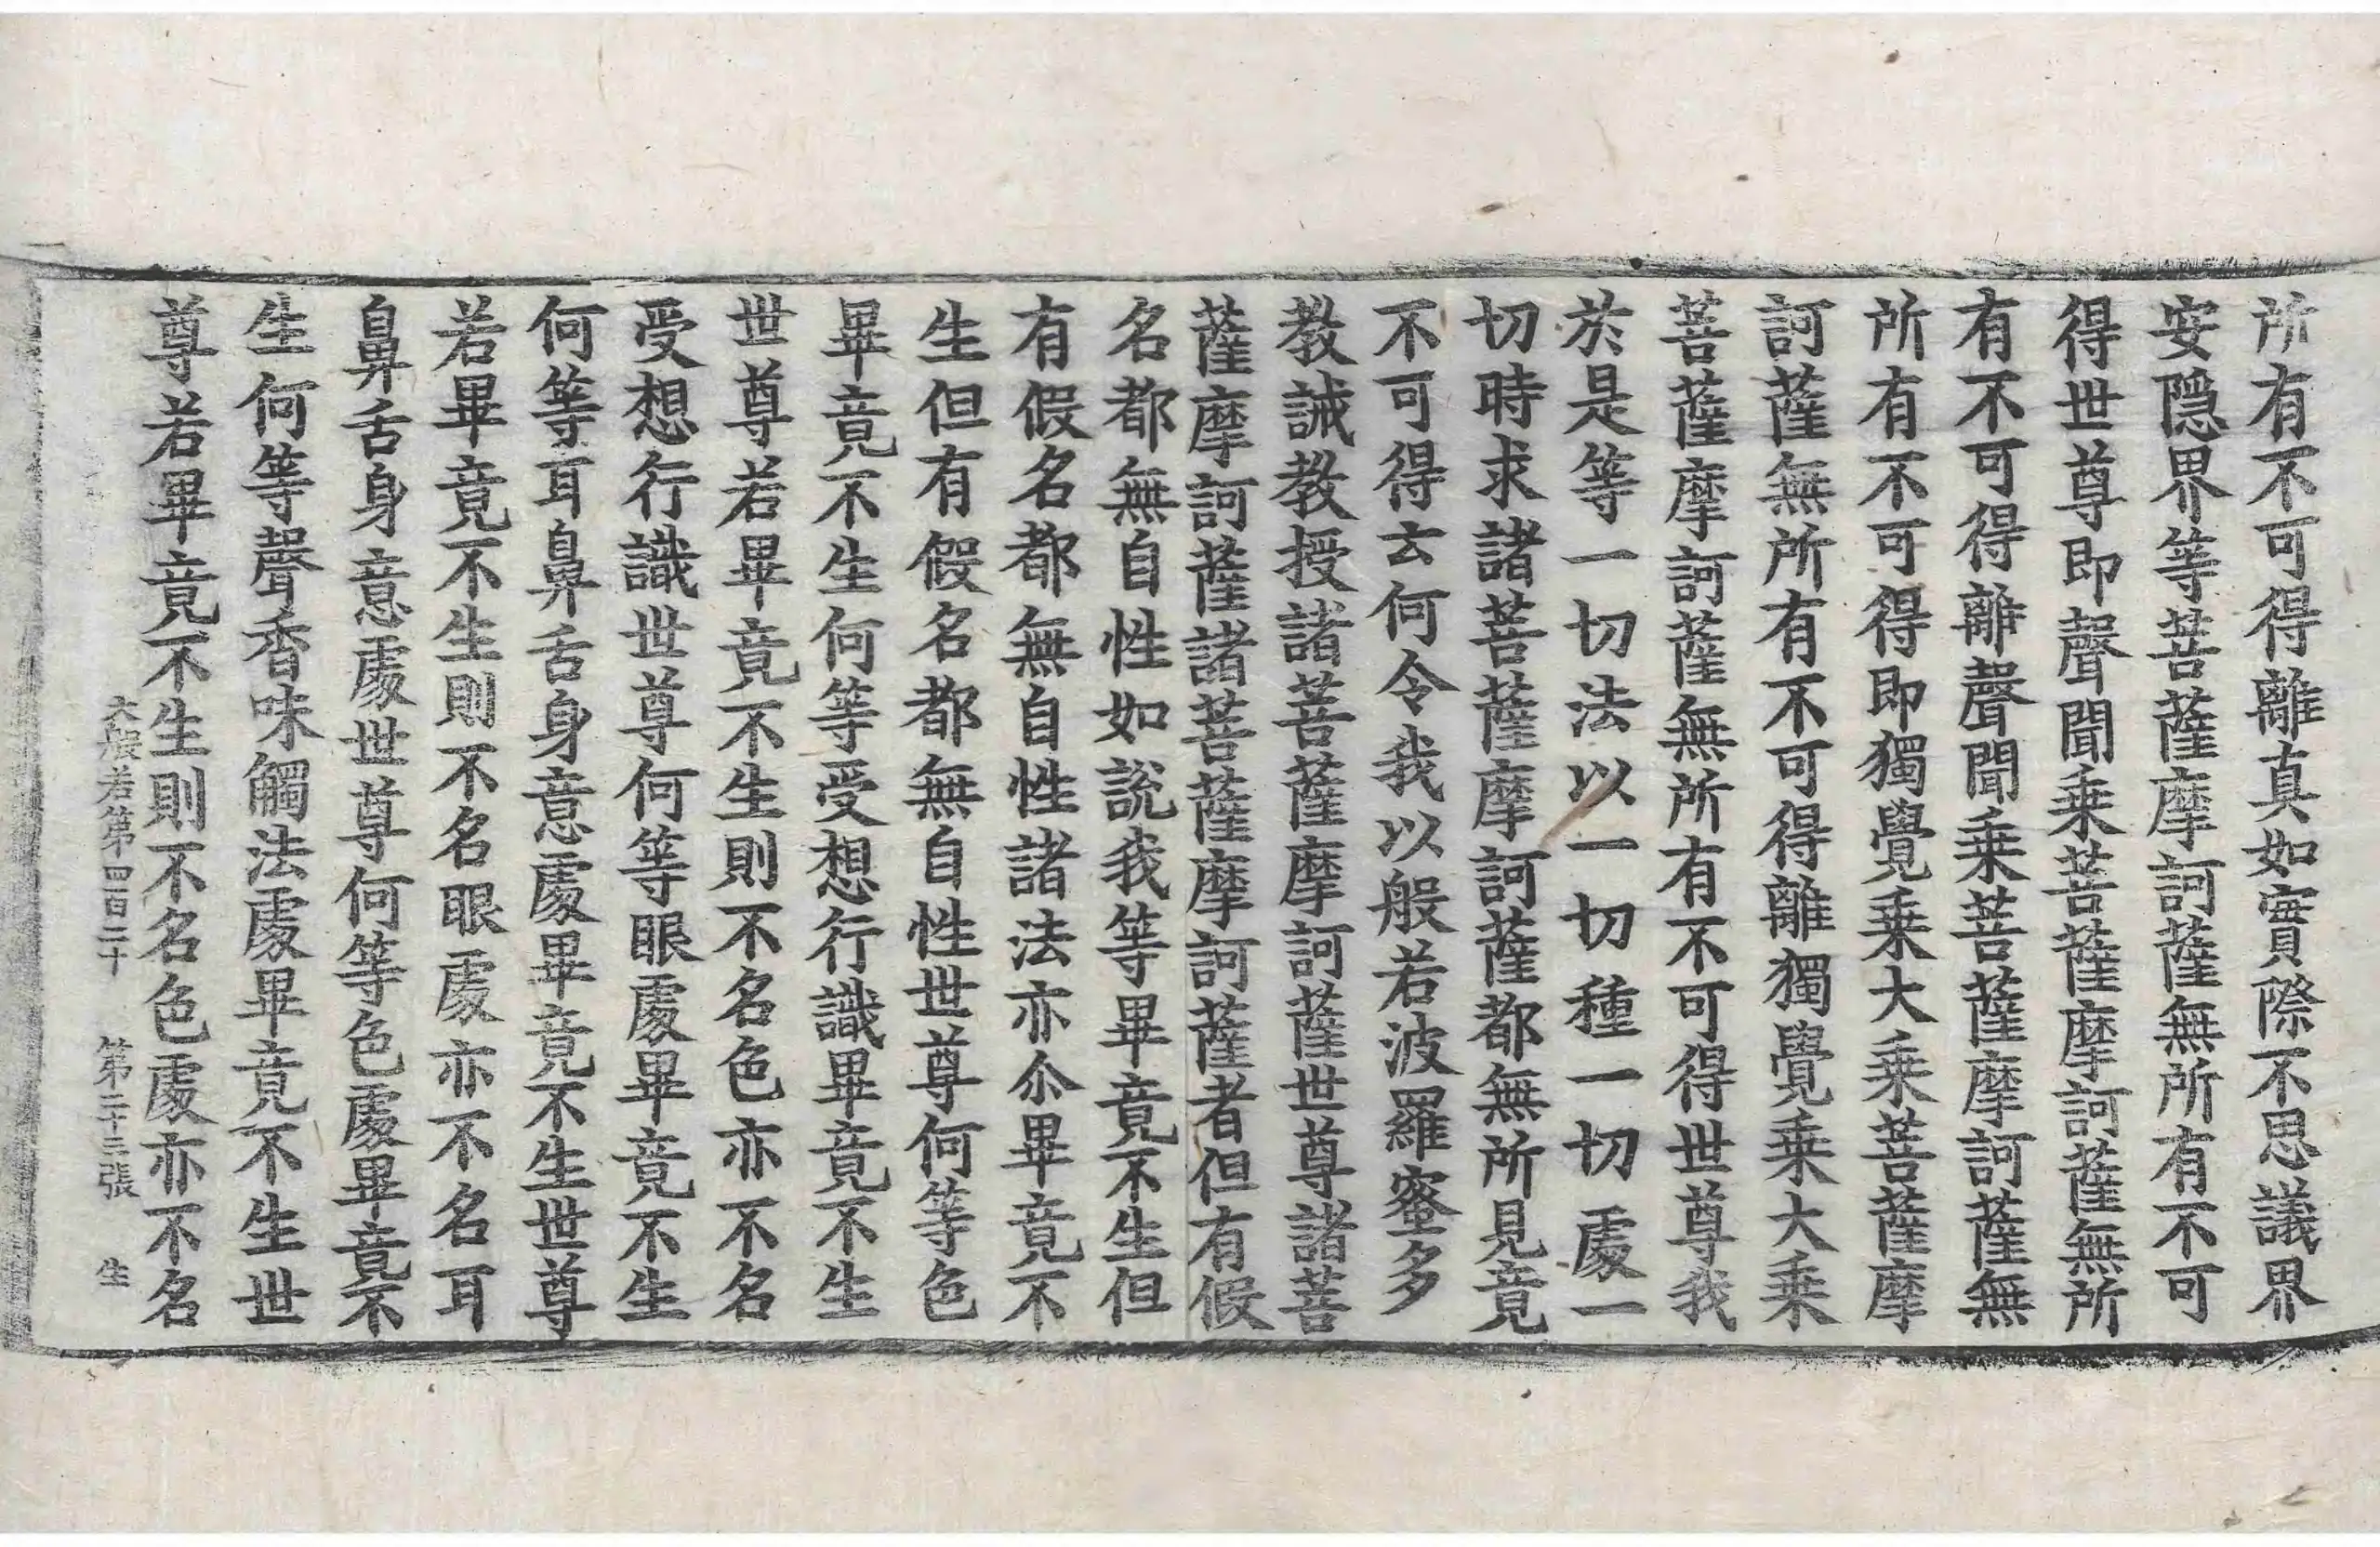 所有不可得離真如實際不思議界
安隱界等菩薩摩訶薩無所有不可
得世尊即聲聞乗菩薩摩訶薩無所
有不可得離聲聞乗菩薩摩訶薩無
所有不可得即獨覺乗大乗菩薩摩
訶薩無所有不可得離獨覺乗大乗
菩薩摩訶薩無所有不可得世尊我
於是等一切法以一切種一切處一
切時求諸菩薩摩訶薩都無所見竟
不可得云何令我以般若波羅蜜多
教誡教授諸菩薩摩訶薩世尊諸菩
薩摩訶薩諸菩薩摩訶薩者但有假
名都無自性如說我等畢竟不生但
有假名都無自性諸法亦尒畢竟不
生但有假名都無自性世尊何等色
畢竟不生何等受想行識畢竟不生
世尊若畢竟不生則不名色亦不名
受想行識世尊何等眼處畢竟不生
何等耳鼻舌身意處畢竟不生世尊
若畢竟不生則不名眼處亦不名耳
鼻舌身意處世尊何等色處畢竟不
生何等聲香味觸法處畢竟不生世
尊若畢竟不生則不名色處亦不名
大般若第四百二十 第二十三張 生